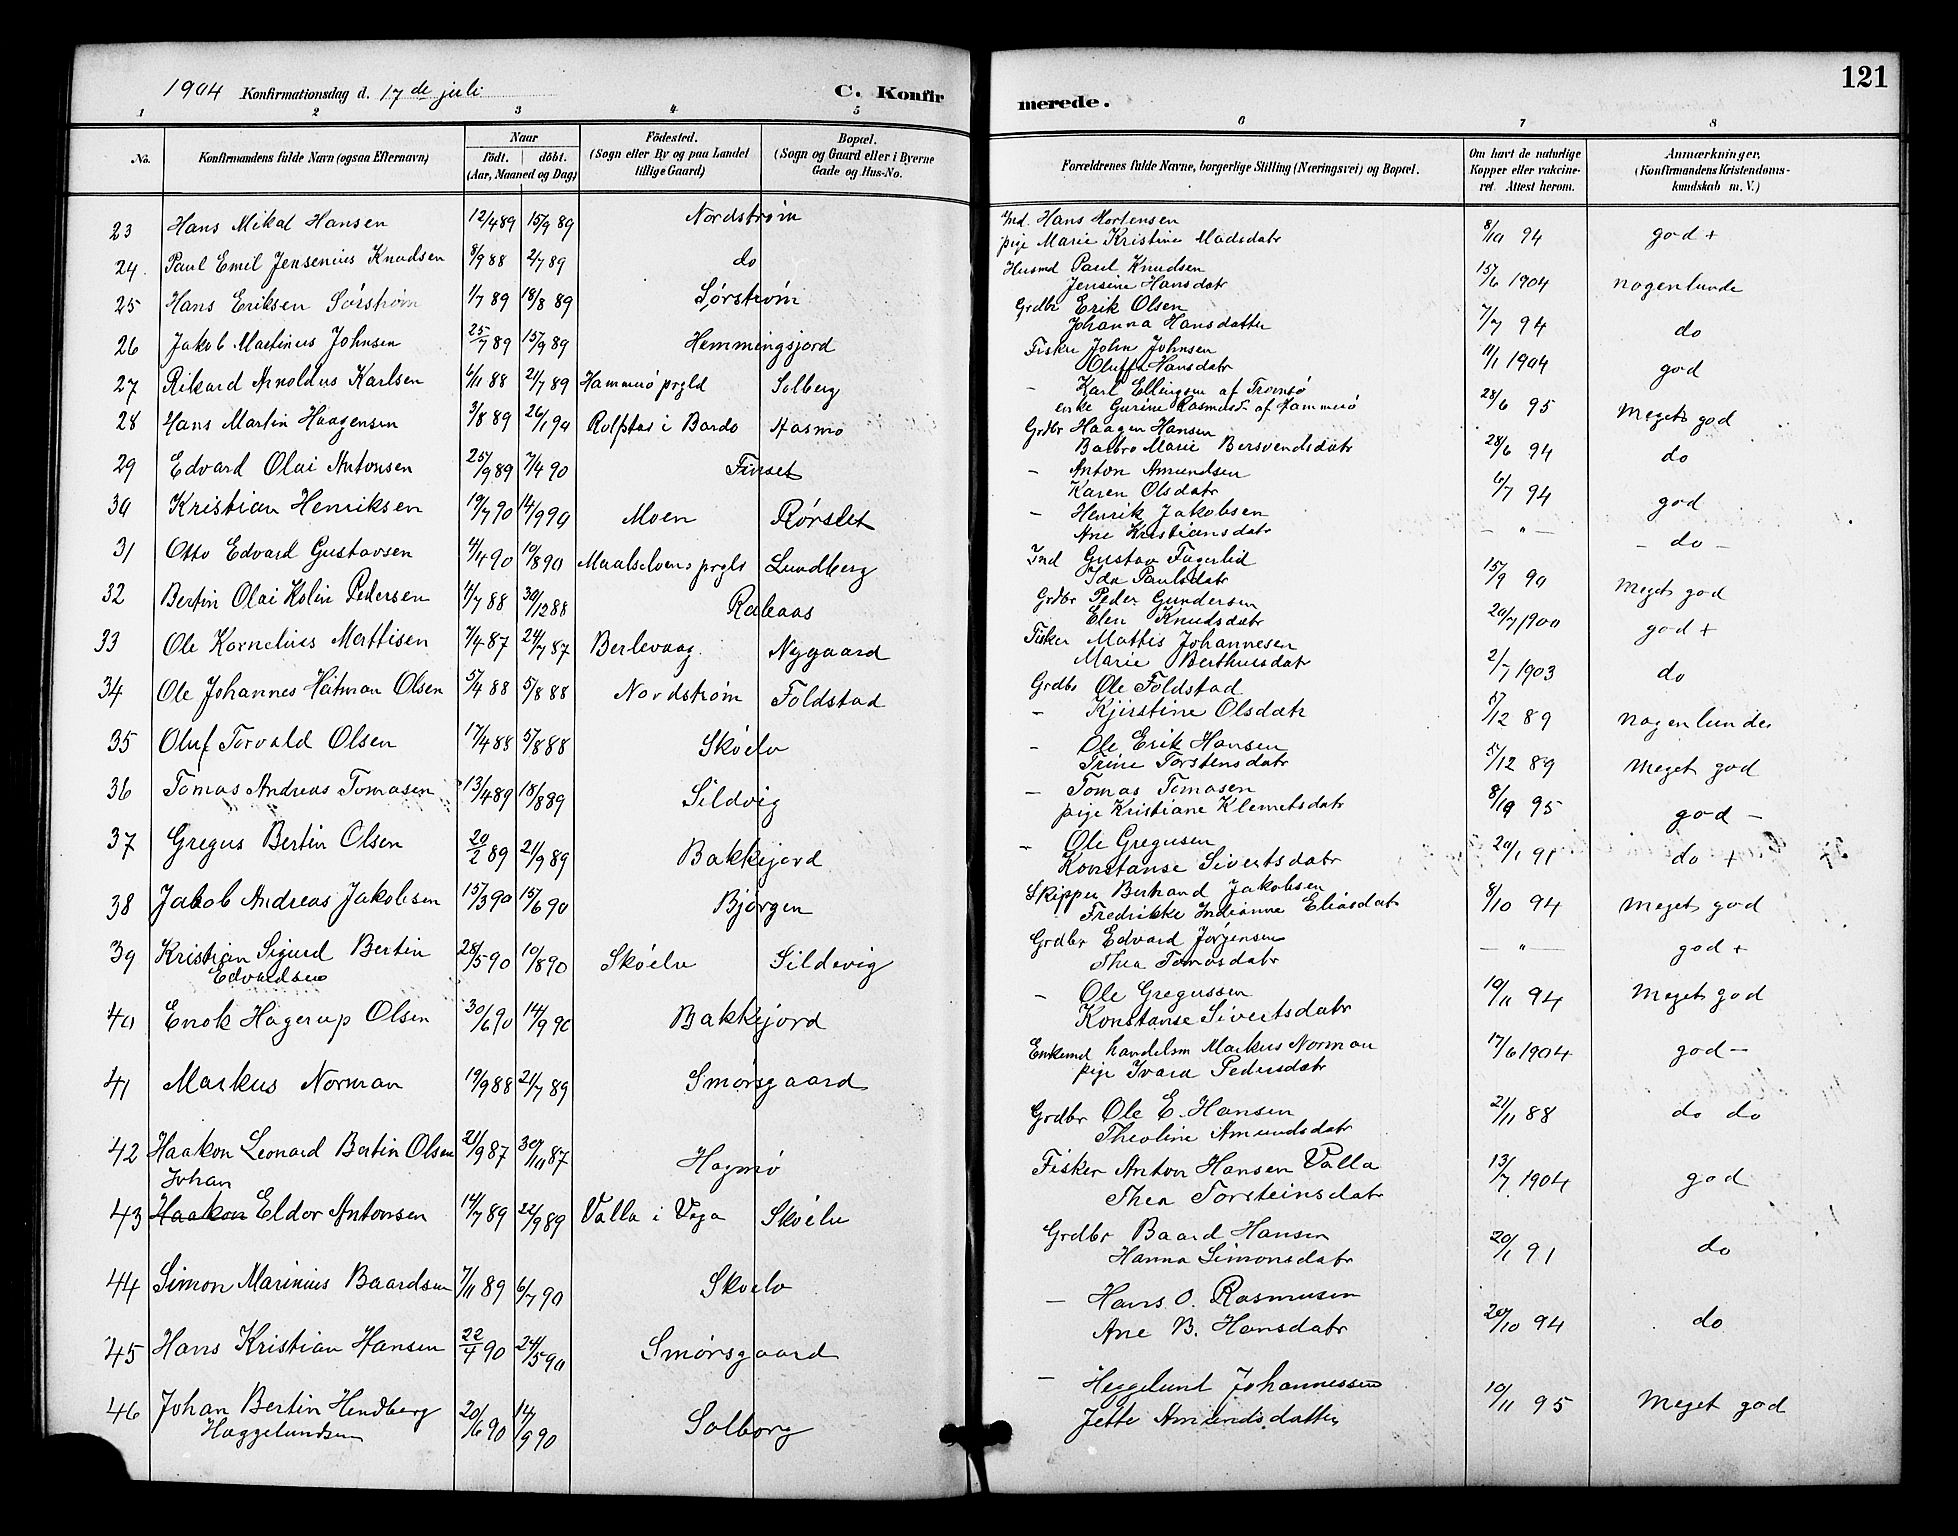 1904 Konfirmationsdag d. 17de juli C. Konfirmerede. 121
1 2 3 4 5 6 7 8
No. Konfirmandens fulde Navn (ogsaa Efternavn) Naar födt. döbt. (Aar, Maaned og Dag) Födested. (Sogn eller By og paa Landet tillige Gaard) Bopæl. (Sogn og Gaard eller i Byerne Gade og Hus-No. Forældrenes fulde Navne, borgerlige Stilling (Næringsvei) og Bopæl. Om havt de naturlige Kopper eller vakcineret. Attest herom. Anmærkninger. (Konfirmandens Kristendomskundskab m. V.)
23 Hans Mikal Hansen 12/4 89 15/9 89 Nordstrøm Ind. Hans Mortensen 8/10 94 god +
pige Marie Kristine Madsdatr
24 Paul Emil Jensenius Knudsen 8/9 88 2/7 89 do Husmd Paul Knudsen 15/6 1904 nogenlunde
Jensine Hansdatr
25 Hans Eriksen Sørstrøm 1/7 89 18/8 89 Sørstrøm Grdbr Erik Olsen 7/7 94 do
Johanna Hansdatter
26 Jakob Martinus Johnsen 25/7 89 15/9 89 Hemmingsjord Fisker John Johnsen 11/1 1904 god
Oluffa Hansdatr
27 Rikard Arnoldus Karlsen 6/11 88 21/7 89 Hammerø prgld Solberg - Karl Ellingsen af Tromsø 28/6 95 Meget god
enke Gurine Rasmusd. af Hammerø
28 Hans Martin Haagensen 3/8 89 26/1 90 Rolfstas i Bardo Aasmo Grdbr Haagen Hansen 28/6 94 do
Barbro Marie Bersvendsdatr
29 Edvard Olai Antonsen 25/9 89 7/4 90 Finset - Anton Amundsen 6/7 94 god
Karen Olsdatr
30 Kristian Henriksen 19/7 90 14/9 90 Moen Rørslet - Henrik Jakobsen - " - - do -
Ane Kristiansdatr
31 Otto Edvard Gustavsen 4/4 90 10/8 90 Maalselvens prgld Lundberg Ind Gustav Fagerlid 15/9 90 Meget god
Ida Paulsdatr
32 Bertin Olai Kolin Pedersen 4/7 88 30/12 88 Rabaas Grdbr Peder Gundersen 20/7 1900 god +
Elen Knudsdatr
33 Ole Kornelius Mattisen 7/4 87 24/7 87 Berlevaag Nygaard Fisker Mattis Johannesen 2/7 1903 do
Marie Berthusdatr
34 Ole Johannes Hitman Olsen 5/4 88 5/8 88 Nordstrøm Foldstad Grdbr Ole Foldstad 5/12 89 nogenlunde
- Kjirstine Olsdatr
35 Oluf Torvald Olsen 17/4 88 5/8 88 Skøelv - Ole Erik Hansen 5/12 89 Meget god
Trine Torstensdatr
36 Tomas Andreas Tomasen 13/4 89 18/8 89 Sildvig - Tomas Tomasen 8/10 95 god -
pige Kristiane Klemetsdatr
37 Gregus Bertin Olsen 20/2 89 21/9 89 Bakkejord - Ole Gregusen 20/1 91 do +
Konstanse Sivertsdatr
38 Jakob Andreas Jakobsen 15/3 90 15/6 90 Bjorgen Skipper Berhard Jakobsen 8/10 94 Meget god
Fredrikke Indianna Eliasdatr
39 Kristian Sigurd Bertin 28/5 90 10/8 90 Skøelv Sildvig Grdbr Edvard Jørgensen - " - god +
Edvardsen Thea Tomasdatr
40 Enok Hagerup Olsen 30/6 90 14/9 90 Bakkejord - Ole Gregussen 10/11 94 Meget god
Konstanse Sivertsdatr
41 Markus Norman 19/9 88 21/7 89 Smørsgaard Enkemd handelsm Markus Norman 17/6 1904 god -
pige Ivara Pedersdatr
42 Haakon Leonard Bertin Olsen 21/9 87 30/10 87 Hagmø Grdbr Ole E. Hansen 21/11 88 do do
Theoline Amundsdatr
Johan
43 Haakon Eldor Antonsen 14/7 89 22/9 89 Valla i Vega Skøelv Fisker Anton Hansen Valla 13/7 1904 god
Thea Torsteinsdatr
44 Simon Marinius Baardsen 7/11 89 6/7 90 Skøelv Grdbr Baard Hansen 20/1 91 do
Hanna Simonsdatr
45 Hans Kristian Hansen 22/4 90 24/5 90 Smørsgaard - Hans O. Rasmusen 20/10 94 do
Ane B. Hansdatr
46 Johan Bertin Hendberg 20/6 90 14/9 90 Solborg - Heggelund Johannessen 10/11 95 Meget god
Heggelundsen Jette Amundsdatter